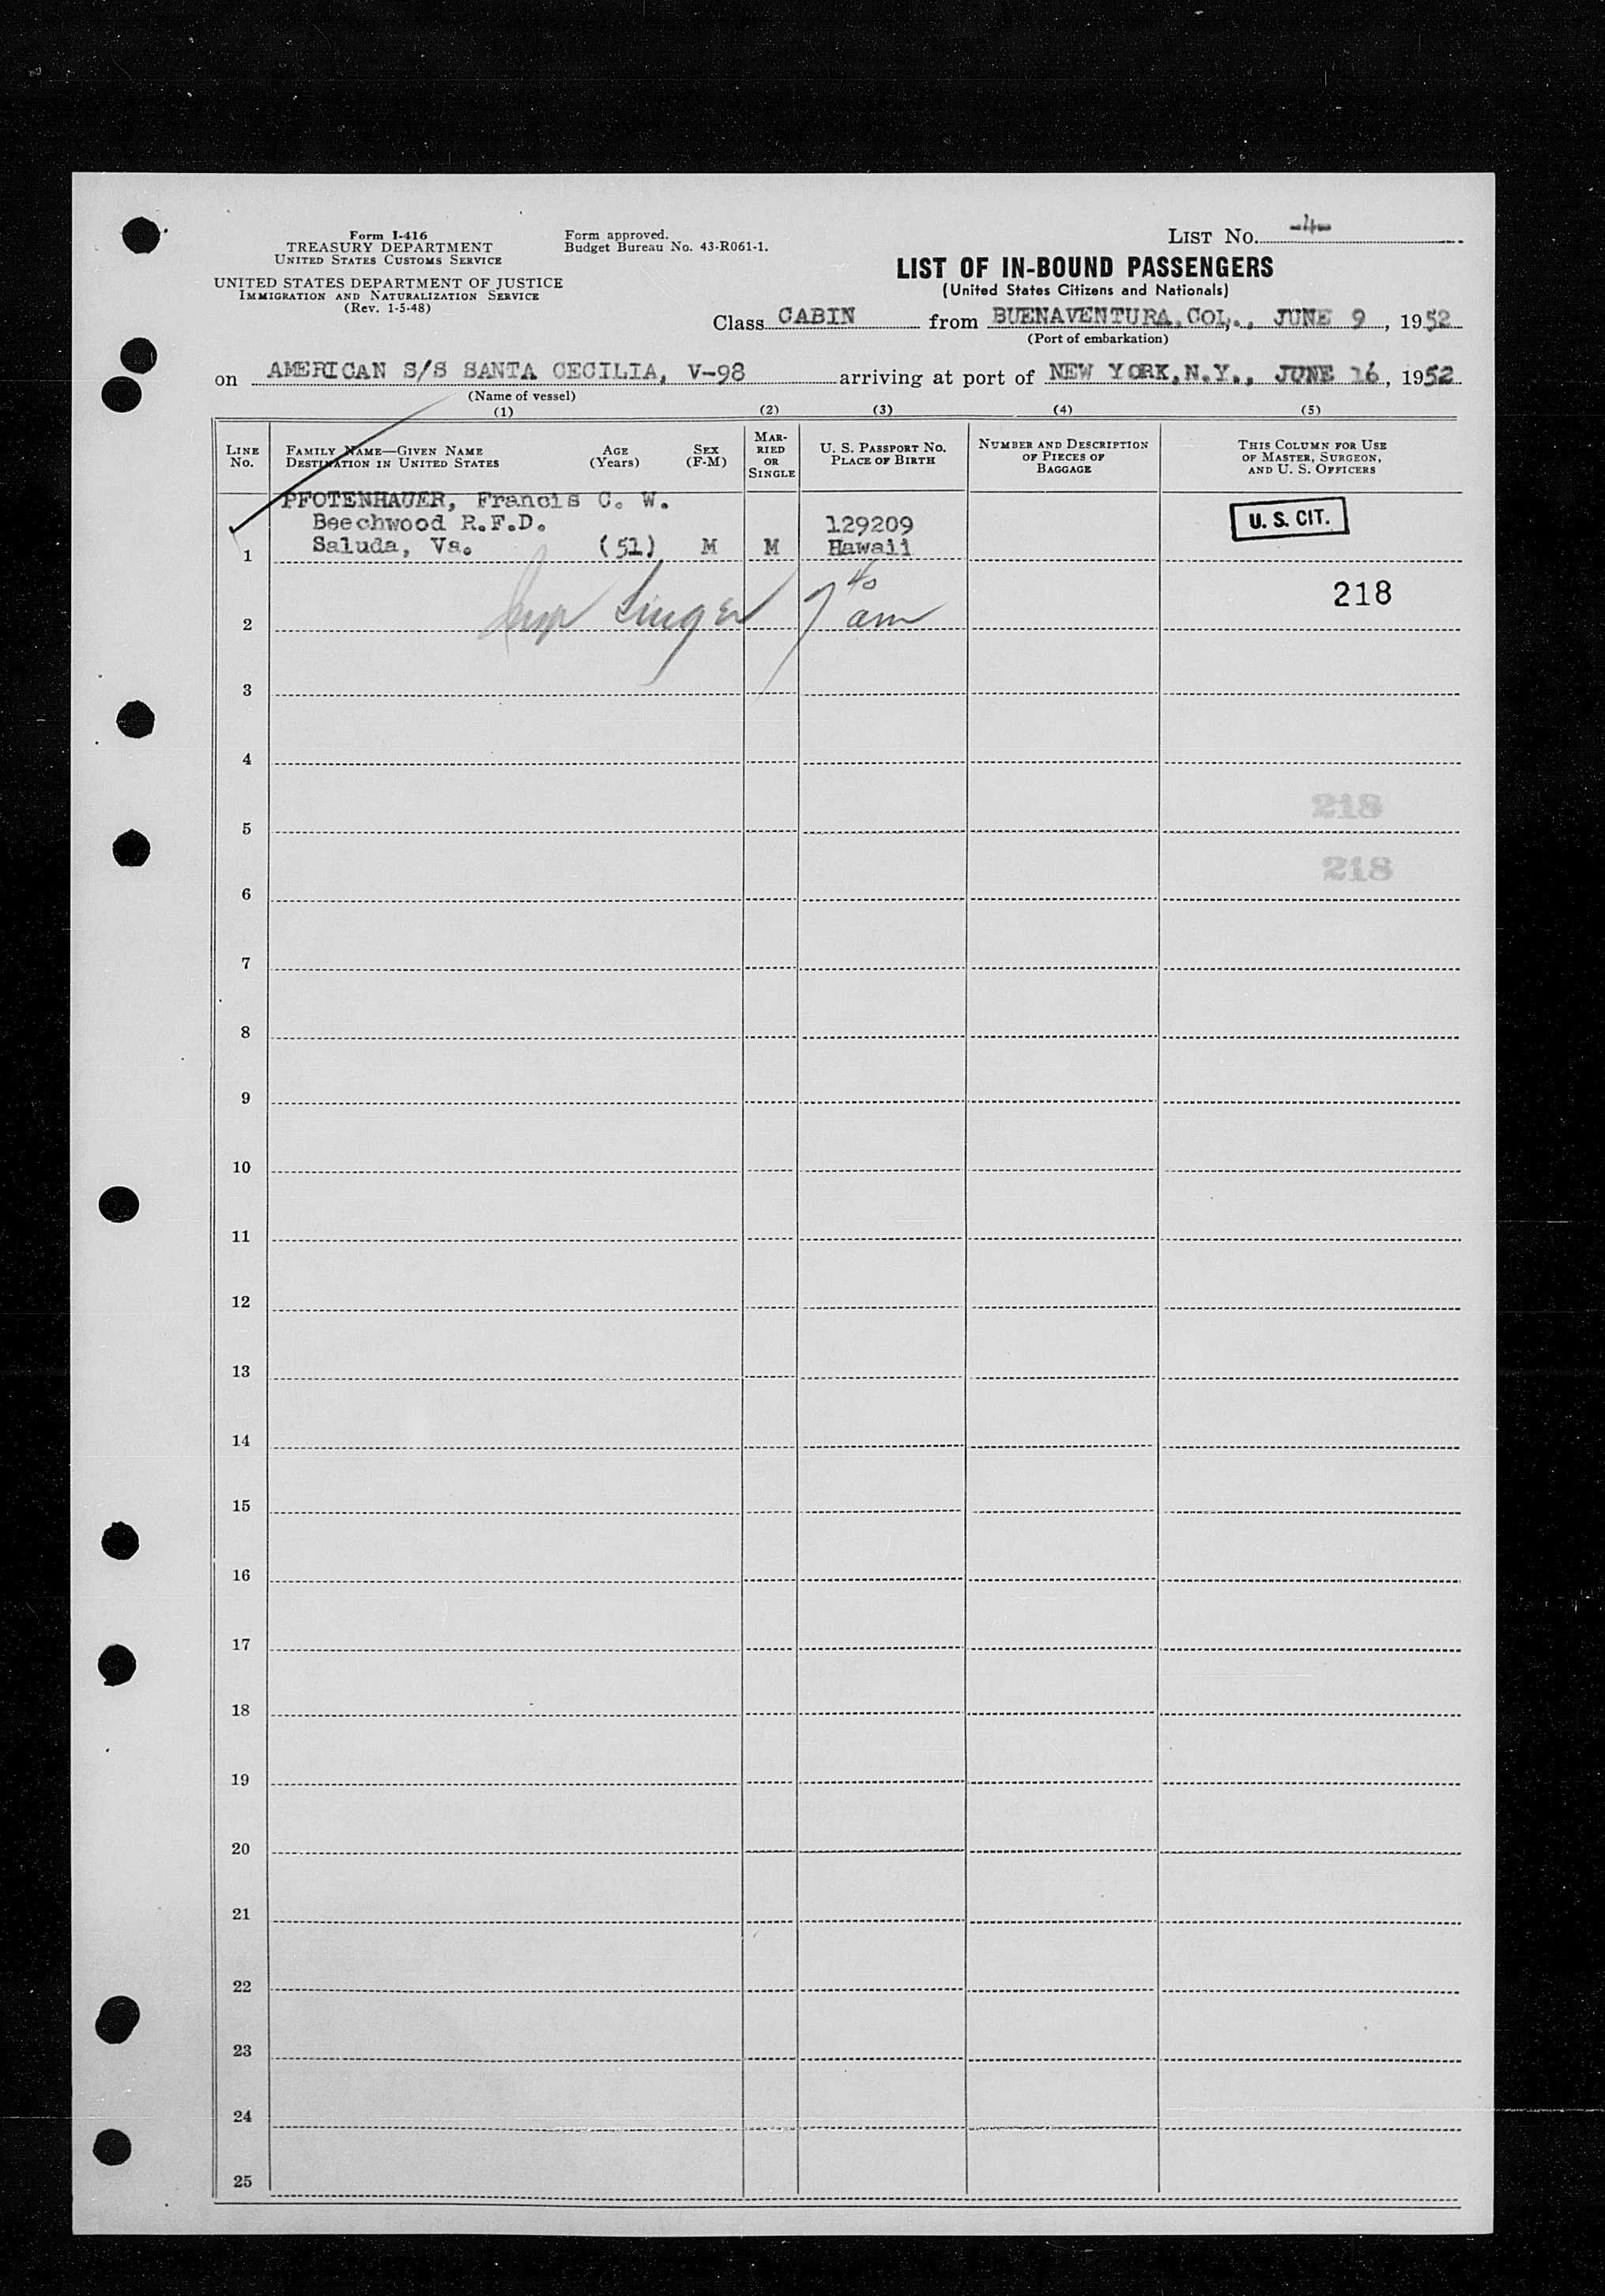 Form I-416
TREASURY DEPARTMENT
UNITED STATES CUSTOMS SERVICE
UNITED STATES DEPARTMENT OF JUSTICE
IMMIGRATION AND NATURALIZATION SERVICE
(Rev. 1-5-48)
Form approved.
Budget Bureau No. 43-R061-1.
LIST NO. -4-
LIST OF IN-BOUND PASSENGERS
(United States Citizens and Nationals)
Class CABIN from BUENAVENTURA, COL., JUNE 9, 1952
(Port of embarkation)
on AMERICAN S/S SANTA CECILIA, V-98 arriving at port of NEW YORK, N.Y., JUNE 16, 1952
(Name of vessel)
(1) (2) (3) (4) (5)
LINE NO.
FAMILY NAME—GIVEN NAME
DESTINATION IN UNITED STATES
AGE (Years)
SEX (F-M)
MARRIED OR SINGLE
U. S. PASSPORT NO.
PLACE OF BIRTH
NUMBER AND DESCRIPTION OF PIECES OF BAGGAGE
THIS COLUMN FOR USE OF MASTER, SURGEON, AND U. S. OFFICERS
PFOTENHAUER, Francis C. W.
Beechwood R.F.D. 129209 U. S. CIT.
1 Saluda, Va. (51) M M Hawaii
2 Singer 7 40 am 218
3
4
5 218
6 218
7
8
9
10
11
12
13
14
15
16
17
18
19
20
21
22
23
24
25